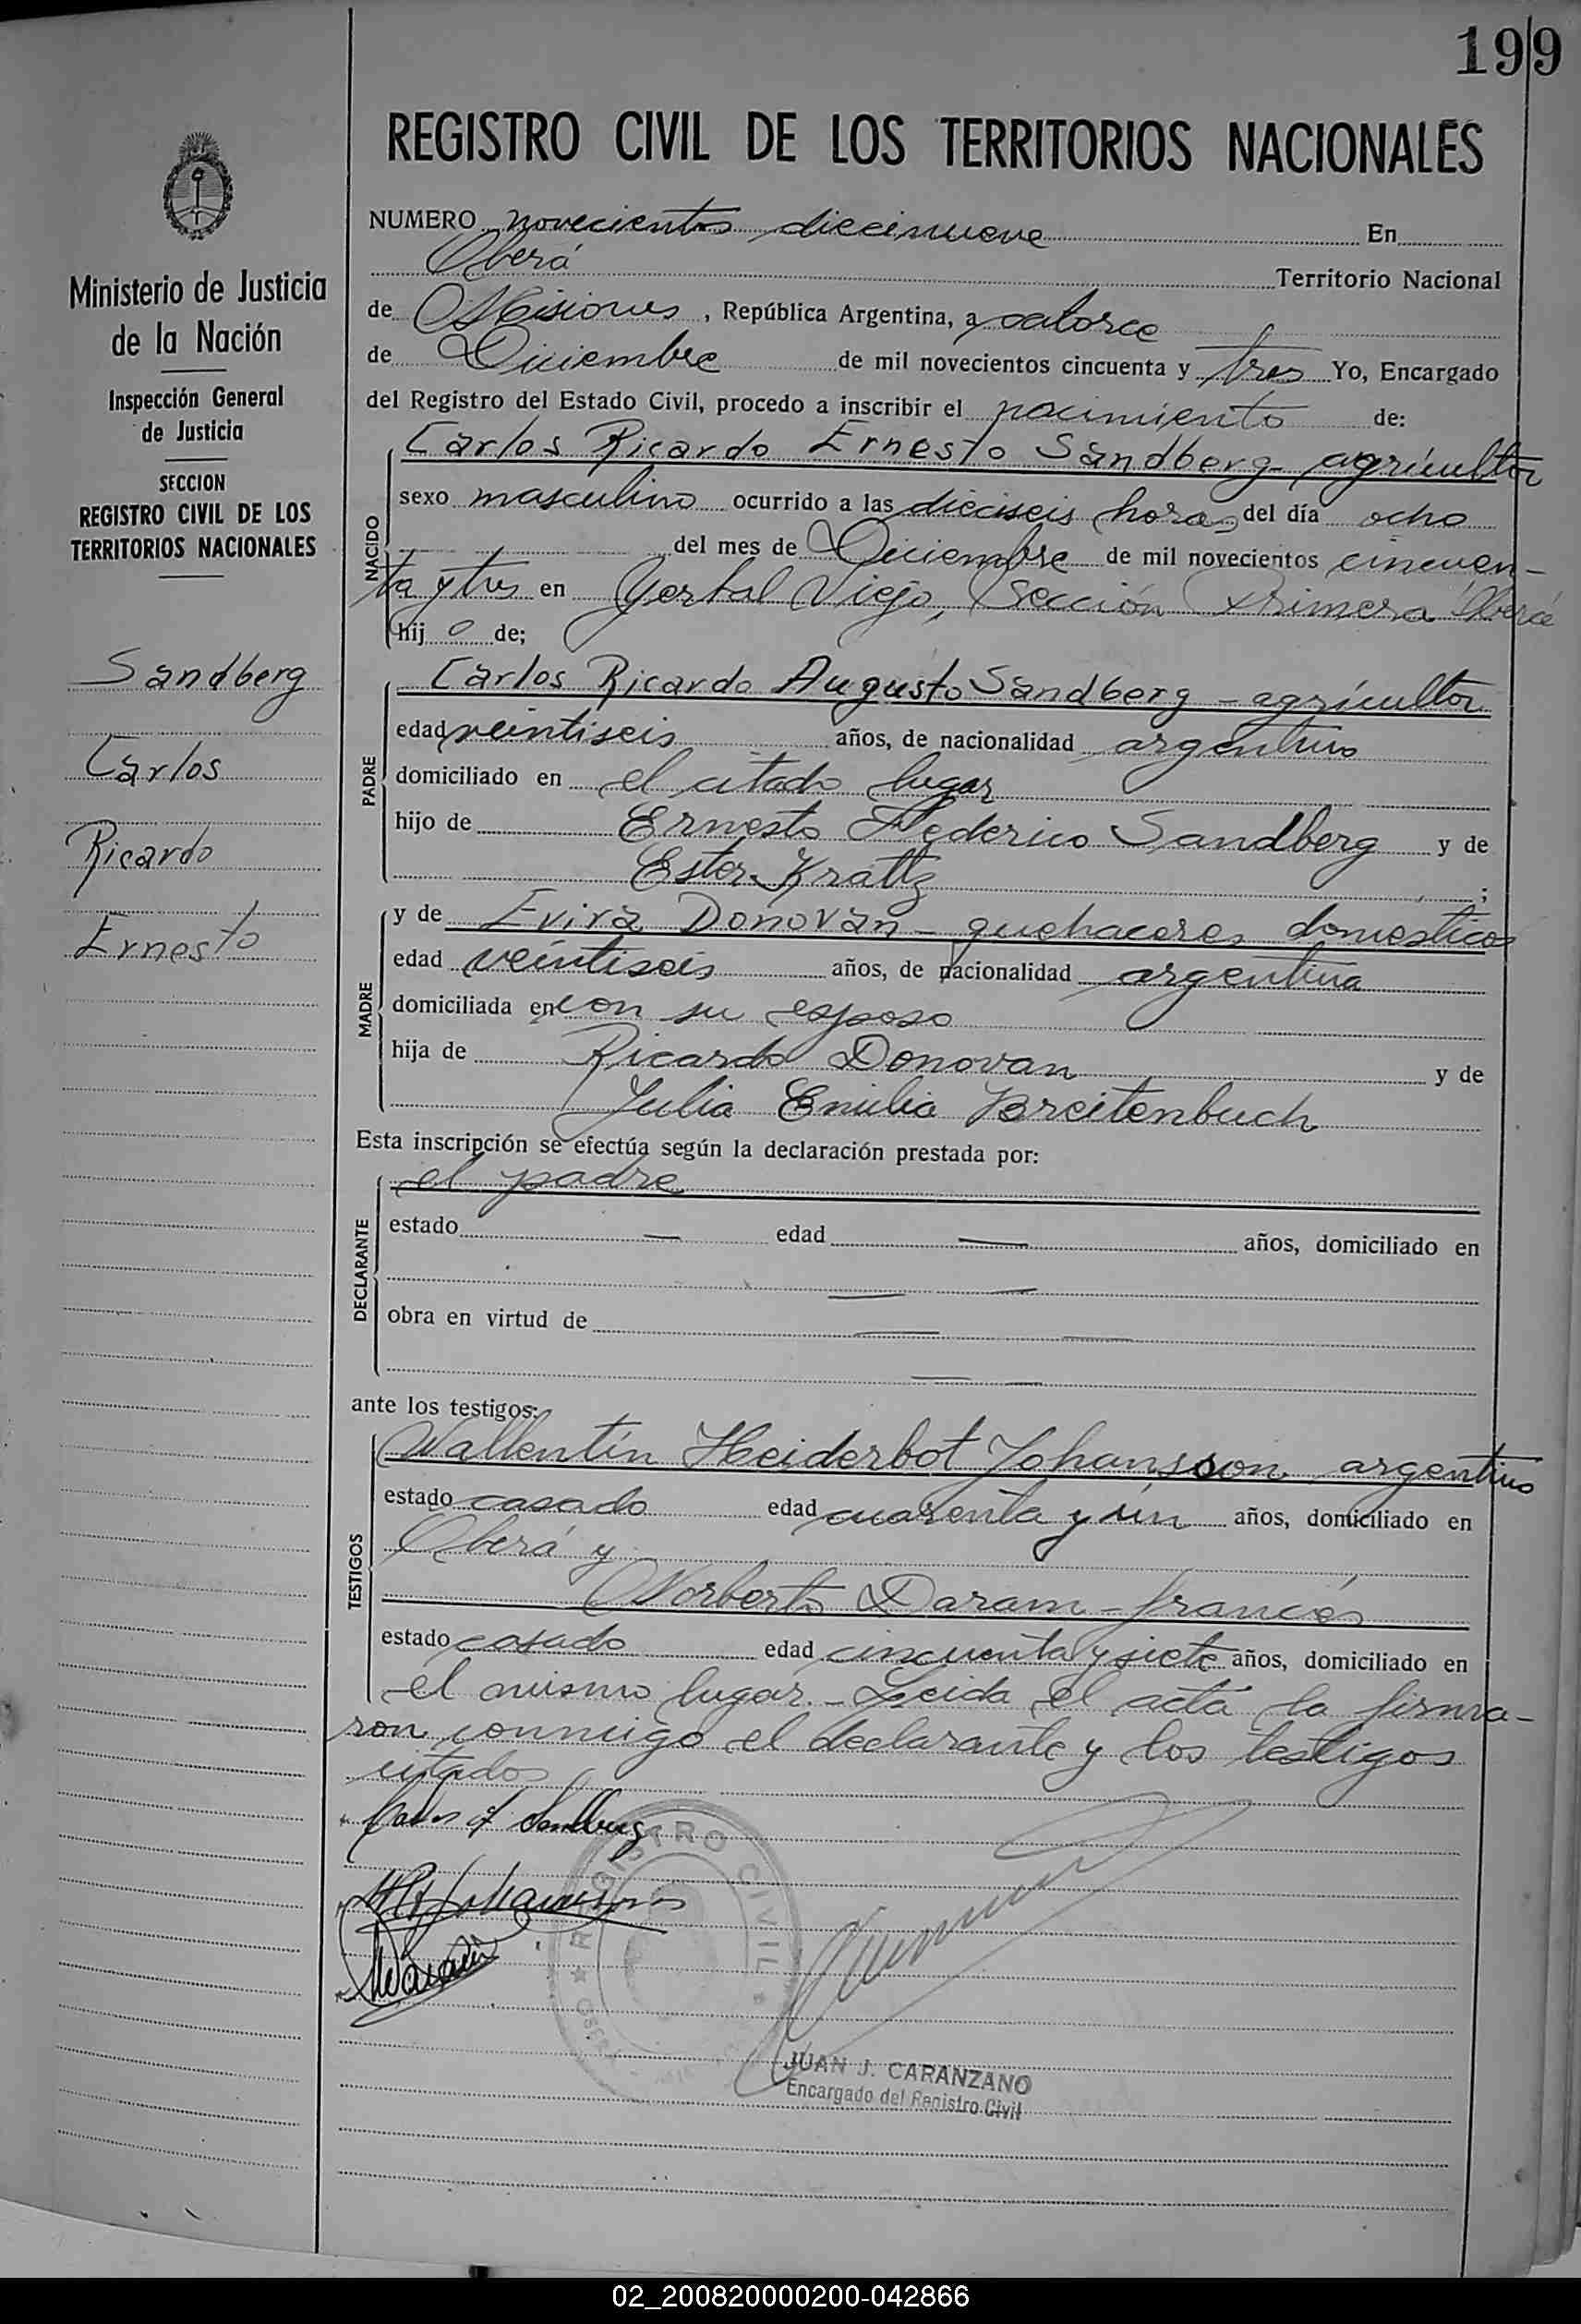 199
REGISTRO CIVIL DE LOS TERRITORIOS NACIONALES
Ministerio de Justicia
de la Nación
Inspección General
de Justicia
SECCION
REGISTRO CIVIL DE LOS
TERRITORIOS NACIONALES
Sandberg
Carlos
Ricardo
Ernesto
NUMERO novecientos diecinueve En
Oberá Territorio Nacional
de Misiones, República Argentina, a catorce
de Diciembre de mil novecientos cincuenta y tres Yo, Encargado
del Registro del Estado Civil, procedo a inscribir el nacimiento de:
NACIDO
Carlos Ricardo Ernesto Sandberg - agricultor
sexo masculino ocurrido a las dieciseis horas del día ocho
del mes de Diciembre de mil novecientos cincuen-
ta y tres en Yerbal Viejo, Sección Primera Oberá
hijo de;
PADRE
Carlos Ricardo Augusto Sandberg - agricultor
edad veintiseis años, de nacionalidad argentino
domiciliado en el citado lugar
hijo de Ernesto Federico Sandberg y de
Ester Krattz ;
MADRE
y de Evira Donovan - quehaceres domésticos
edad veintiseis años, de nacionalidad argentina
domiciliada en con su esposo
hija de Ricardo Donovan y de
Julia Emilia Breitenbuch
Esta inscripción se efectúa según la declaración prestada por:
DECLARANTE
el padre
estado — edad — años, domiciliado en
— —
obra en virtud de — —
— —
ante los testigos:
TESTIGOS
Wallentín Heiderbot Johansson argentino
estado casado edad cuarenta y un años, domiciliado en
Oberá y
Norberto Daram - francés
estado casado edad cincuenta y siete años, domiciliado en
el mismo lugar. - Leida el acta la firma-
ron conmigo el declarante y los testigos
citados
REGISTRO CIVIL
OBERA
JUAN J. CARANZANO
Encargado del Registro Civil
02_200820000200-042866